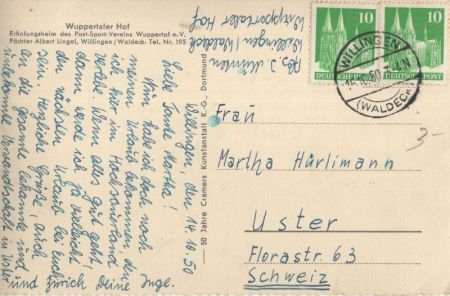 Wuppertaler Hof
Erholungsheim des Post-Sport-Vereins Wuppertal e.V.
Pächter Albert Lingel, Willingen/Waldeck - Tel. Nr. 195
Willingen, den 14.10.50
Liebe Tante Martha!
Nun habe ich doch noch
meinen Urlaub bekommen, den
ich hier im Hochsauerland
verlebe. Wenn alles gut geht,
dann werde ich ja vielleicht
den nächsten Urlaub bei Euch
sein. Herzliche Grüße, auch
an die gesamte bekannte und
unbekannte Verwandtschaft in Uster
und Zürich Deine Inge.
50 Jahre Cramers Kunstanstalt K.-G., Dortmund
Willingen/Waldeck
Wuppertaler Hof
10
10
DEUTSCHE POST
WILLINGEN
(WALDECK)
Frau
Martha Hürlimann
Uster
Florastr. 63
Schweiz
3-